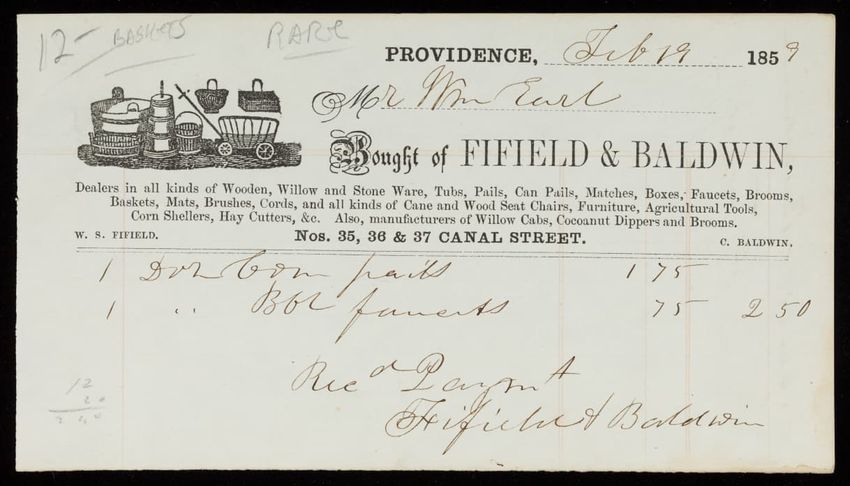 12- BASKETS RARE
PROVIDENCE, Feb 19 1859
Mr Wm Earl
Bought of FIFIELD & BALDWIN,
Dealers in all kinds of Wooden, Willow and Stone Ware, Tubs, Pails, Can Pails, Matches, Boxes, Faucets, Brooms,
Baskets, Mats, Brushes, Cords, and all kinds of Cane and Wood Seat Chairs, Furniture, Agricultural Tools,
Corn Shellers, Hay Cutters, &c. Also, manufacturers of Willow Cabs, Cocoanut Dippers and Brooms.
W. S. FIFIELD. Nos. 35, 36 & 37 CANAL STREET. C. BALDWIN.
1 Doz Com pails 1 75
1 " Bbl faucets 75 2 50
Rec'd Paymt
Fifield & Baldwin
12